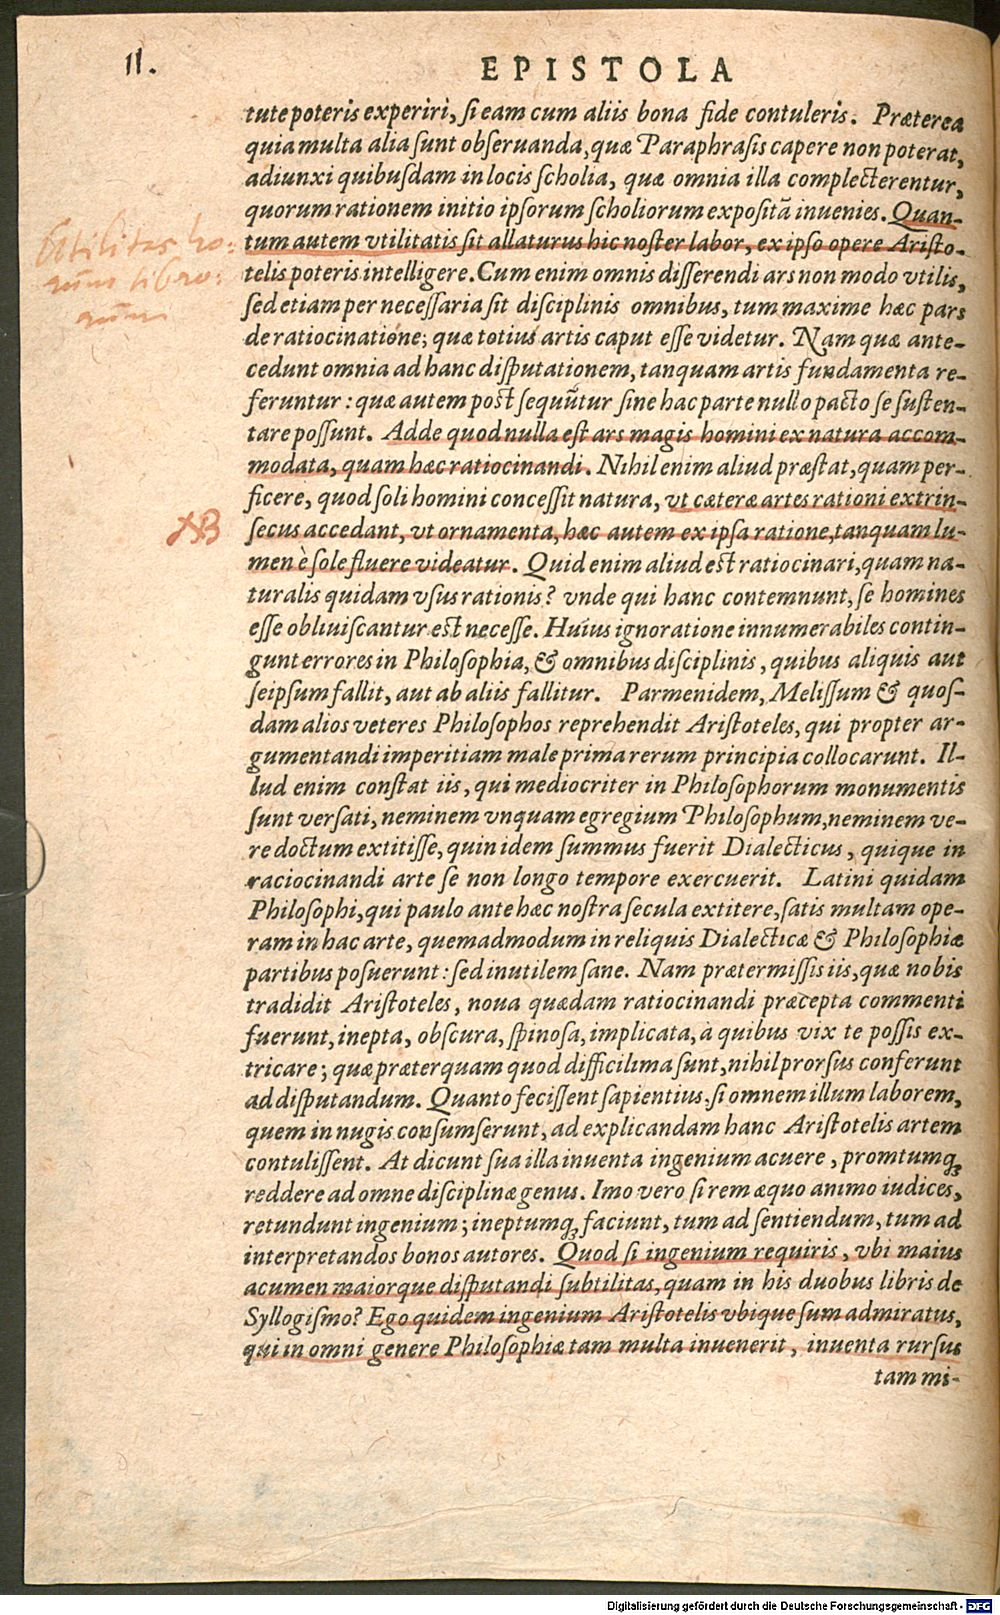 11.
EPISTOLA
tute poteris experiri, si eam cum aliis bona fide contuleris. Præterea
quia multa alia sunt obseruanda, quæ Paraphrasis capere non poterat,
adiunxi quibusdam in locis scholia, quæ omnia illa complecterentur,
quorum rationem initio ipsorum scholiorum expositã inuenies. Quan-
tum autem vtilitatis sit allaturus hic noster labor, ex ipso opere Aristo-
telis poteris intelligere. Cum enim omnis disserendi ars non modo vtilis,
sed etiam per necessaria sit disciplinis omnibus, tum maxime hæc pars
de ratiocinatione; quæ totius artis caput esse videtur. Nam quæ ante-
cedunt omnia ad hanc disputationem, tanquam artis fundamenta re-
feruntur: quæ autem post sequũtur sine hac parte nullo pacto se susten-
tare possunt. Adde quod nulla est ars magis homini ex natura accom-
modata, quam hæc ratiocinandi. Nihil enim aliud præstat, quam per-
ficere, quod soli homini concessit natura, vt cæteræ artes rationi extrin-
secus accedant, vt ornamenta, hæc autem ex ipsa ratione, tanquam lu-
men è sole fluere videatur. Quid enim aliud est ratiocinari, quam na-
turalis quidam vsus rationis? vnde qui hanc contemnunt, se homines
esse obliuiscantur est necesse. Huius ignoratione innumerabiles contin-
gunt errores in Philosophia, & omnibus disciplinis, quibus aliquis aut
seipsum fallit, aut ab aliis fallitur. Parmenidem, Melissum & quos-
dam alios veteres Philosophos reprehendit Aristoteles, qui propter ar-
gumentandi imperitiam male prima rerum principia collocarunt. Il-
lud enim constat iis, qui mediocriter in Philosophorum monumentis
sunt versati, neminem vnquam egregium Philosophum, neminem ve-
re doctum extitisse, quin idem summus fuerit Dialecticus, quique in
raciocinandi arte se non longo tempore exercuerit. Latini quidam
Philosophi, qui paulo ante hæc nostra secula extitere, satis multam ope-
ram in hac arte, quemadmodum in reliquis Dialecticæ & Philosophiæ
partibus posuerunt: sed inutilem sane. Nam prætermissis iis, quæ nobis
tradidit Aristoteles, noua quædam ratiocinandi præcepta commenti
fuerunt, inepta, obscura, spinosa, implicata, à quibus vix te possis ex-
tricare; quæ præterquam quod difficilima sunt, nihil prorsus conferunt
ad disputandum. Quanto fecissent sapientius, si omnem illum laborem,
quem in nugis consumserunt, ad explicandam hanc Aristotelis artem
contulissent. At dicunt sua illa inuenta ingenium acuere, promtumq;
reddere ad omne disciplinæ genus. Imo vero si rem æquo animo iudices,
retundunt ingenium; ineptumq; faciunt, tum ad sentiendum, tum ad
interpretandos bonos autores. Quod si ingenium requiris, vbi maius
acumen maiorque disputandi subtilitas, quam in his duobus libris de
Syllogismo? Ego quidem ingenium Aristotelis vbique sum admiratus,
qui in omni genere Philosophiæ tam multa inuenerit, inuenta rursus
tam mi-
Utilitas ho:
rum libro:
rum
NB
Digitalisierung gefördert durch die Deutsche Forschungsgemeinschaft - DFG